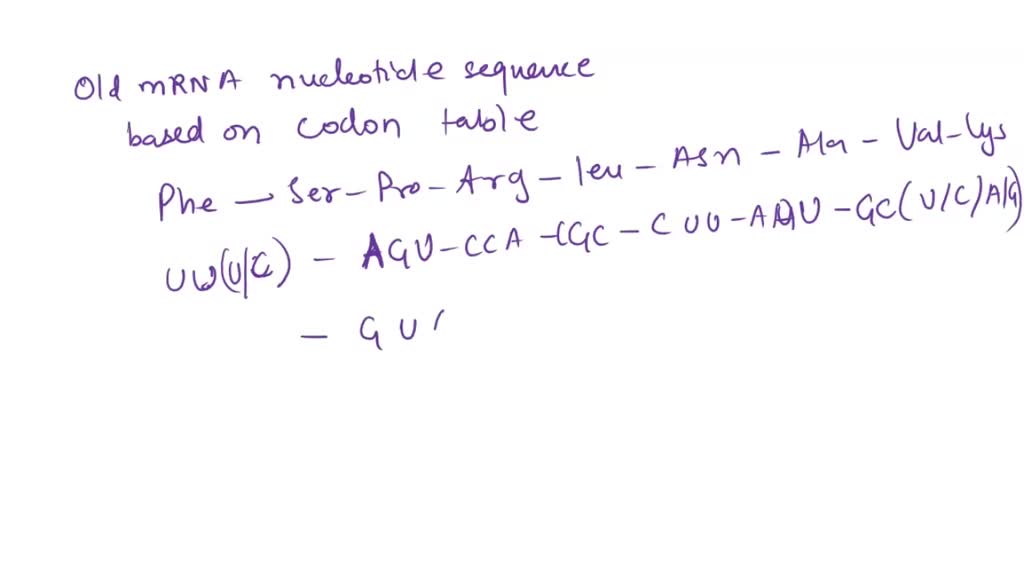 Old mRNA nucleotide sequence
based on codon table
Phe – Ser – Pro – Arg – leu – Asn – Ala – Val – Lys
UU(U/C) – AGU – CCA – CGC – CUU – AAU – GC(U/C/A/G)
– GU(